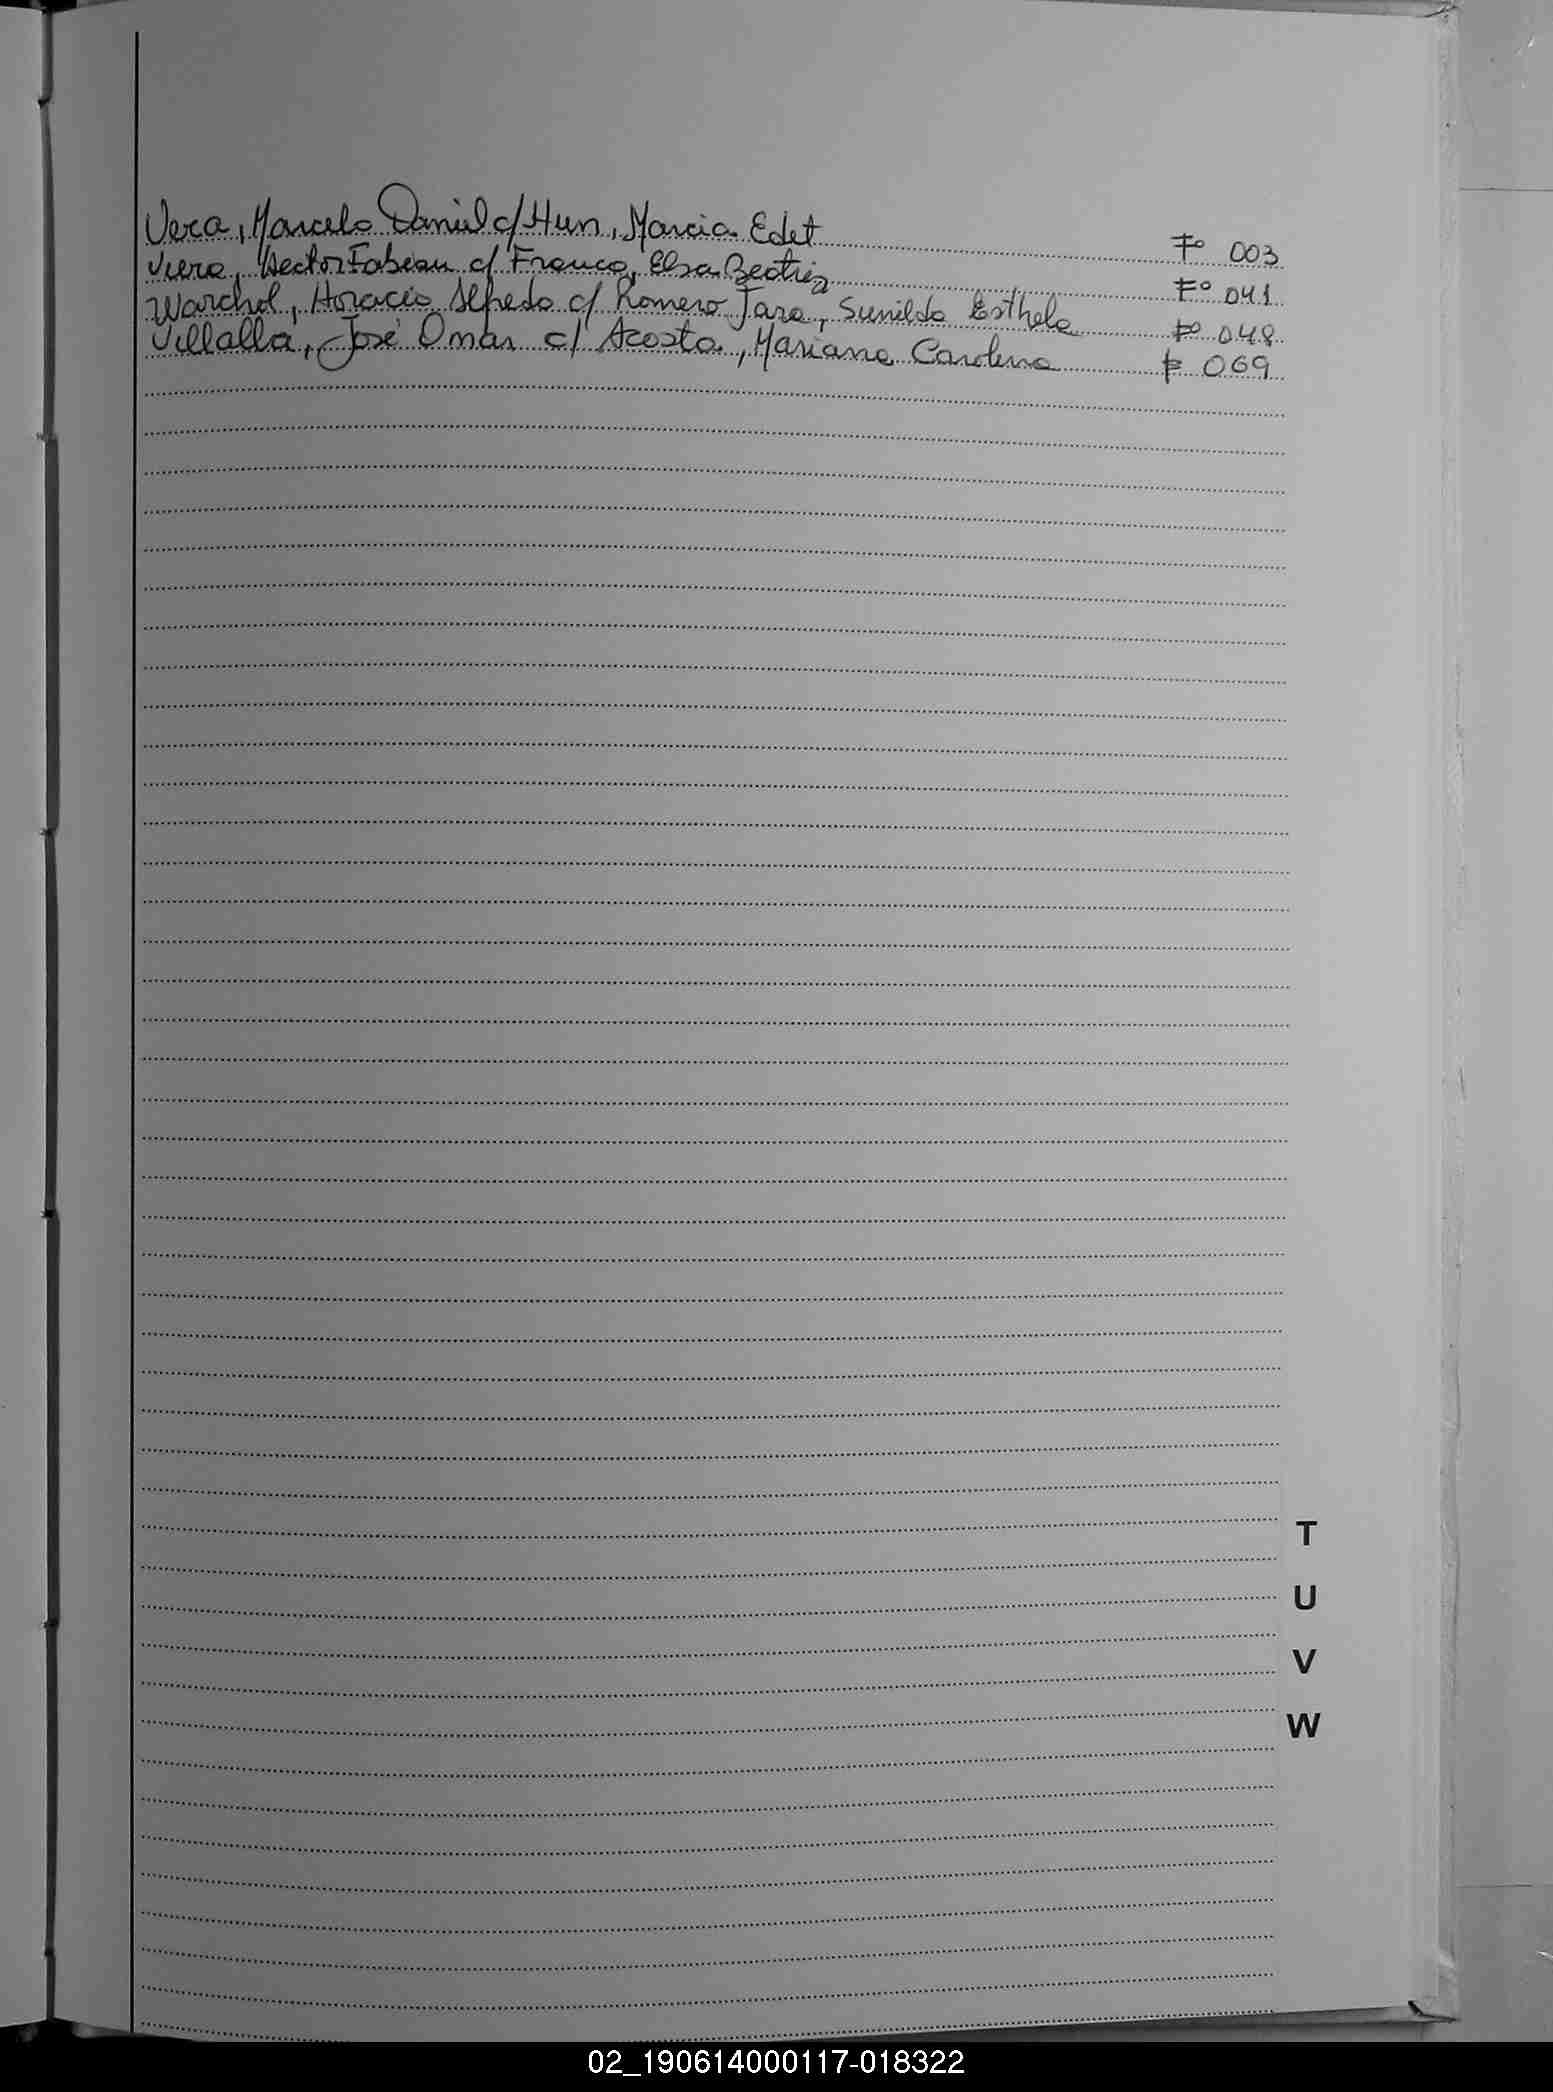 Vera, Marcelo Daniel c/ Hun, Marcia Edet Fº 003
Viera, Hector Fabian c/ Franco, Elsa Beatriz Fº 041
Warchol, Horacio Alfredo c/ Romero Jara, Sunilda Esthela Fº 048
Villalla, José Omar c/ Acosta, Mariana Carolina Fº 069
T
U
V
W
02_190614000117-018322